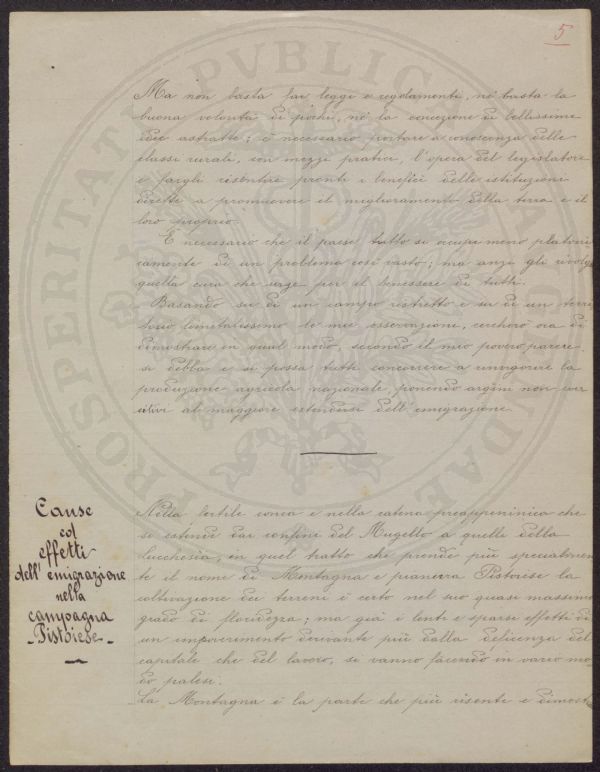 5
Ma non basta far leggi e regolamenti, nè basta la
buona volontà di pochi, nè la concezione di bellissime
idee astratte; è necessario portare a conoscenza delle
classi rurali, con mezzi pratici, l'opera del legislatore
e fargli risentire pronti i benefici delle istituzioni
dirette a promuovere il miglioramento della terra e il
loro proprio.
È necessario che il paese tutto si occupi meno platoni
camente di un problema così vasto; ma anzi gli rivolga
quella cura che urge per il benessere di tutti.
Basando su di un campo ristretto e su di un terri
torio limitatissimo le mie osservazioni, cercherò ora di
dimostrare in qual modo, secondo il mio povero parere
si debba e si possa tutti concorrere a rinvigorire la
produzione agricola nazionale, ponendo argini non coer
citivi al maggiore estendersi dell'emigrazione.
Cause
ed
effetti
dell'emigrazione
nella
campagna
Pistoiese
Nella fertile conca e nella catena preappenninica che
si estende dai confini del Mugello a quelle della
Lucchesia, in quel tratto che prende più specialmen
te il nome di Montagna e pianura Pistoiese la
coltivazione dei terreni è certo nel suo quasi massimo
grado di floridezza; ma già i lenti e sparsi effetti di
un impoverimento derivante più dalla deficenza del
capitale che del lavoro, si vanno facendo in vario mo
do palesi.
La Montagna è la parte che più risente e dimost
PROSPERITATI PVBLICAE